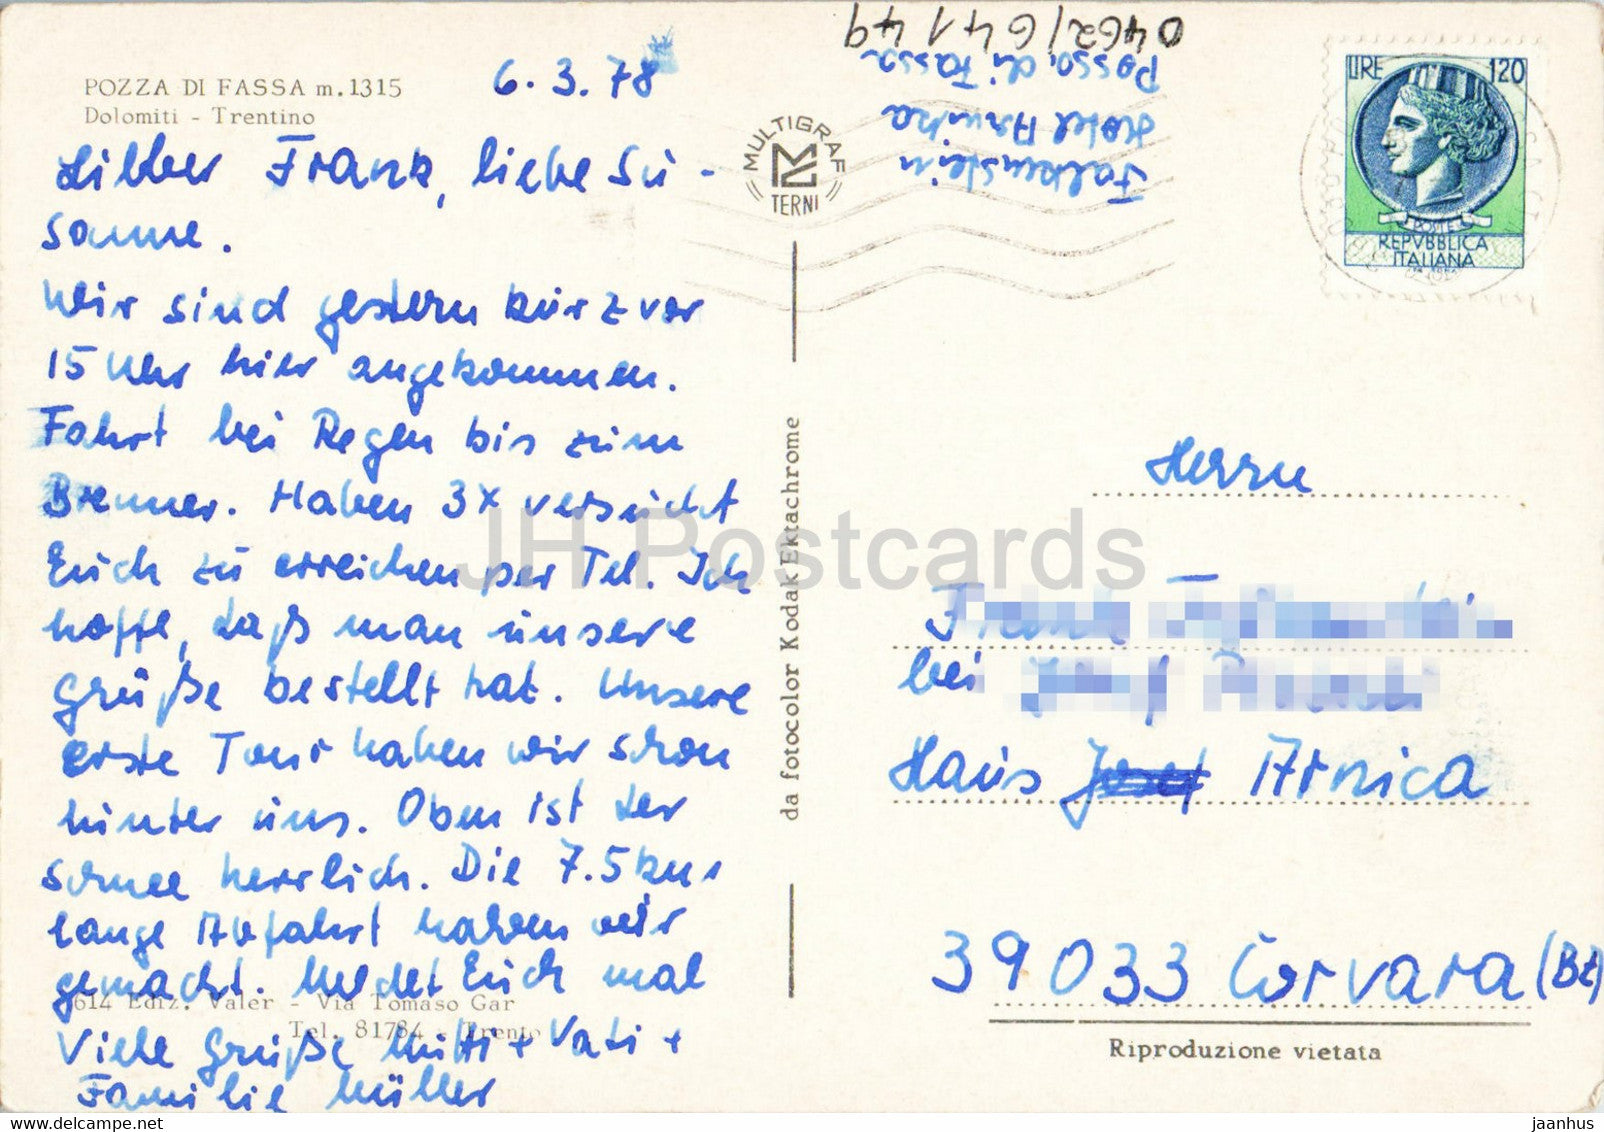 POZZA DI FASSA m.1315
Dolomiti - Trentino
6.3.78
Lieber Frank, liebe Su-
sanne.
Wir sind gestern kurz vor
15 Uhr hier angekommen.
Fahrt bei Regen bis zum
Brenner. Haben 3x versucht
Euch zu erreichen per Tel. Ich
hoffe, daß man unsere
Grüße bestellt hat. Unsere
erste Tour haben wir schon
hinter uns. Oben ist der
Schnee herrlich. Die 7.5 km
lange Abfahrt haben wir
gemacht. Meldet Euch mal
Viele Grüße Mutti + Vati +
Familie Müller
614 Ediz. Valer - Via Tomaso Gar
Tel. 81784 - Trento
MULTIGRAF
TERNI
da fotocolor Kodak Ektachrome
Falkenstein
Hotel Arnika
Posso di Fassa
0462/64149
LIRE 120
POSTE
REPVBBLICA
ITALIANA
Herrn
bei
Haus Josef Arnica
39033 Corvara (Bz)
Riproduzione vietata
JH Postcards
jaanhus